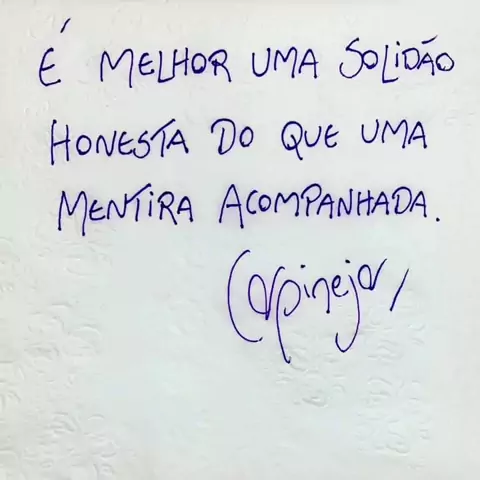 É MELHOR UMA SOLIDÃO
HONESTA DO QUE UMA
MENTIRA ACOMPANHADA.
Carpinejar